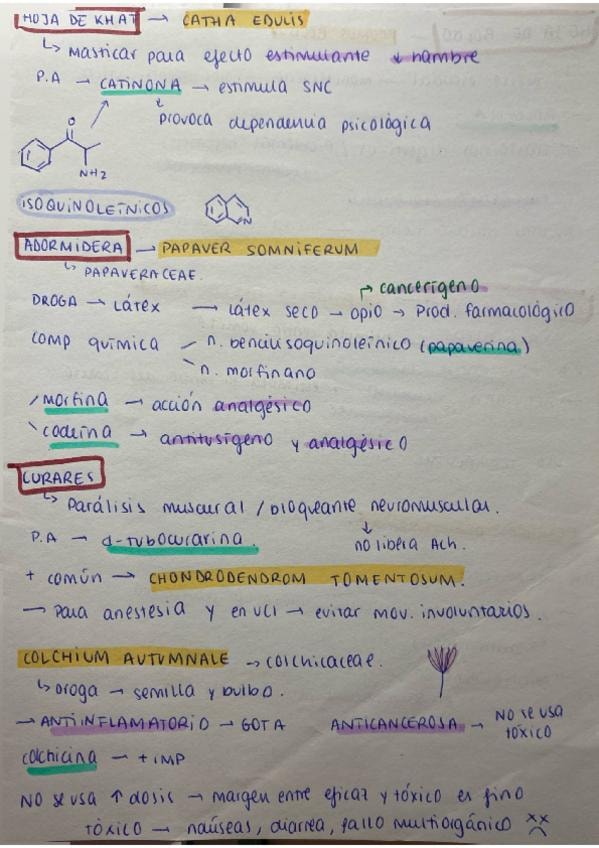 HOJA DE KHAT → CATHA EDULIS
↳ Masticar para efecto estimulante ↓ hambre
P.A → CATINONA → estimula SNC
provoca dependencia psicológica
O
NH2
ISOQUINOLEÍNICOS
N
ADORMIDERA → PAPAVER SOMNIFERUM
↳ PAPAVERACEAE.
cancerígeno
DROGA → LÁTEX → LÁTEX seco → opio → Prod. farmacológico
COMP química - n. bencilisoquinoleínico (papaverina)
n. morfinano
morfina → acción analgésico
codeína → antitusígeno y analgésico
CURARES
↳ Parálisis muscural / bloqueante neuromuscular.
P.A → d-tubocurarina. no libera Ach.
+ común → CHONDRODENDROM TOMENTOSUM.
→ Para anestesia y en UCI → evitar mov. involuntarios.
COLCHIUM AUTUMNALE → colchicaceae.
↳ Droga → semilla y bulbo.
→ ANTIINFLAMATORIO → GOTA ANTICANCEROSA → NO se usa
tóxico
colchicina → + IMP
NO se usa ↑ dosis → margen entre eficaz y tóxico es fino
TÓXICO → naúseas, diarrea, fallo multiorgánico